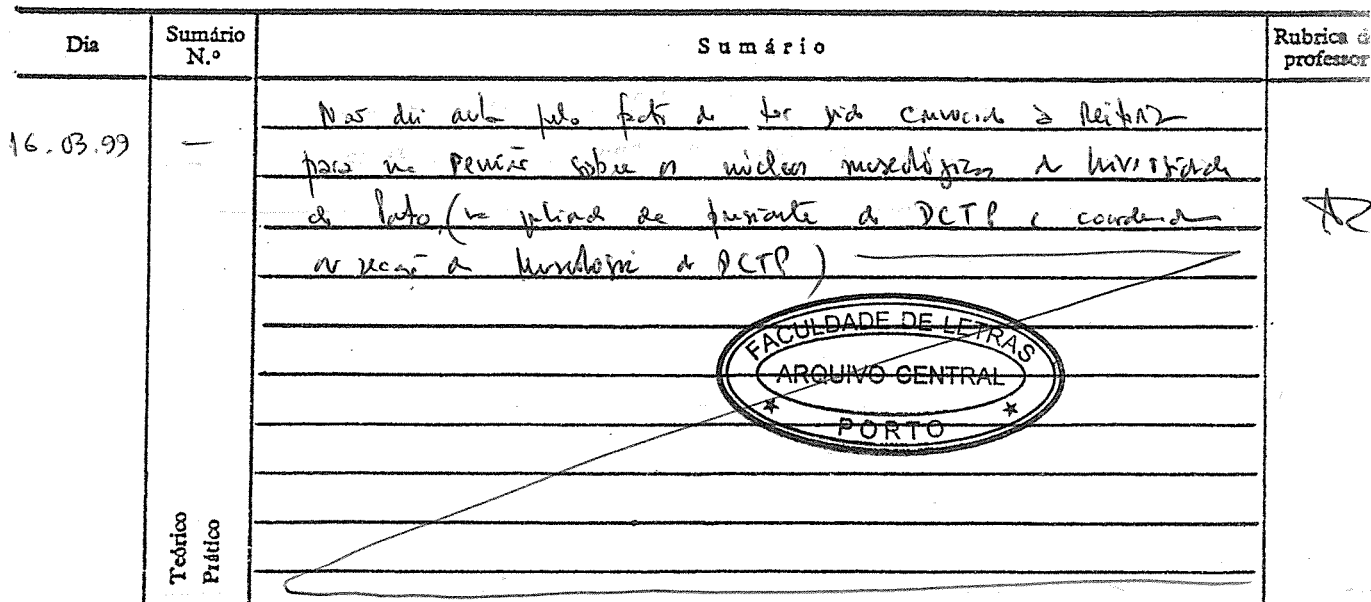 Dia
Sumário N.º
Sumário
Rubrica d
professor
16.03.99
—
Não dei aula pelo facto de ter sido convocado à Reitoria
para uma reunião sobre os núcleos museológicos da Universidade
do Porto, (na qualidade de presidente do DCTP e coordenador
da secção de Museologia do DCTP)
FACULDADE DE LETRAS
ARQUIVO CENTRAL
PORTO
Teórico
Prático